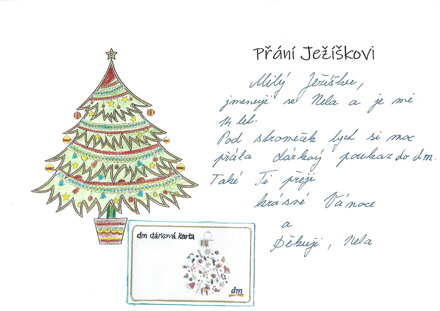 Přání Ježíškovi
Milý Ježíšku,
jmenuji se Nela a je mi
14 let.
Pod stromeček bych si moc
přála dárkový poukaz do dm.
Také Ti přeji
krásné Vánoce
a
Děkuji, Nela
dm dárková karta
dm